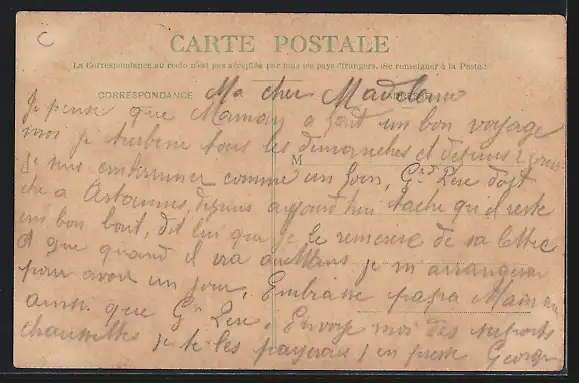 C
CARTE POSTALE
La Correspondance au recto n'est pas acceptée par tous les pays étrangers. (Se renseigner à la Poste.)
CORRESPONDANCE Ma cher Madeleine
Je pense que Maman a fait un bon voyage
moi je turbine tous les dimanches et depuis 2 jours
M
je suis comme un Gr Pere doit
être a depuis aujourd'hui tache qu'il reste
un bon bout, dit lui que je le remercie de sa lettre
et que quand il ira au Mans je m'arrangerai
pour avoir un jour. Embrasse papa Maman
ainsi que Gr Pere. Envoye moi des
chaussettes je te les payerais, en Georges